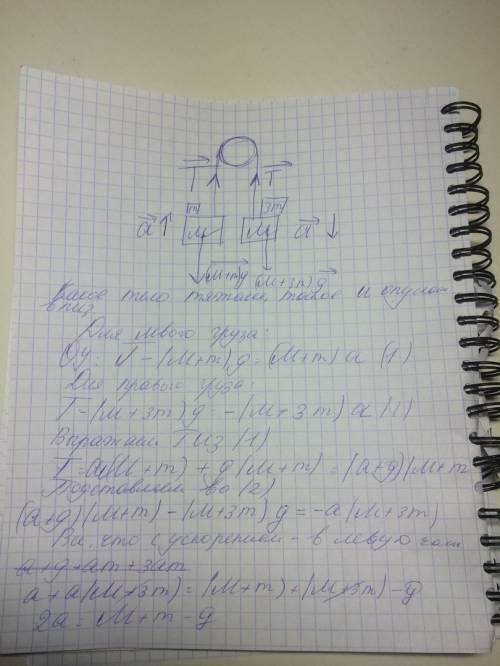 T T
m 3m
a↑ M M a↓
(M+m)g (M+3m)g
Какое тело тяжелее, такое и
вниз
Для левого груза:
Oy: T - (M+m)g = (M+m)a (1)
Для правого груза:
T - (M+3m)g = -(M+3m)a
Выражаем T из (1)
T = a(M+m) + g(M+m) = (a+g)(M+m
Подставляем во (2)
(a+g)(M+m) - (M+3m)g = -a(M+3m)
что с ускорением - в левую
a+g+am+3am
a+a(M+3m) = (M+m)+(M+3m)-g
2a = M+m-g